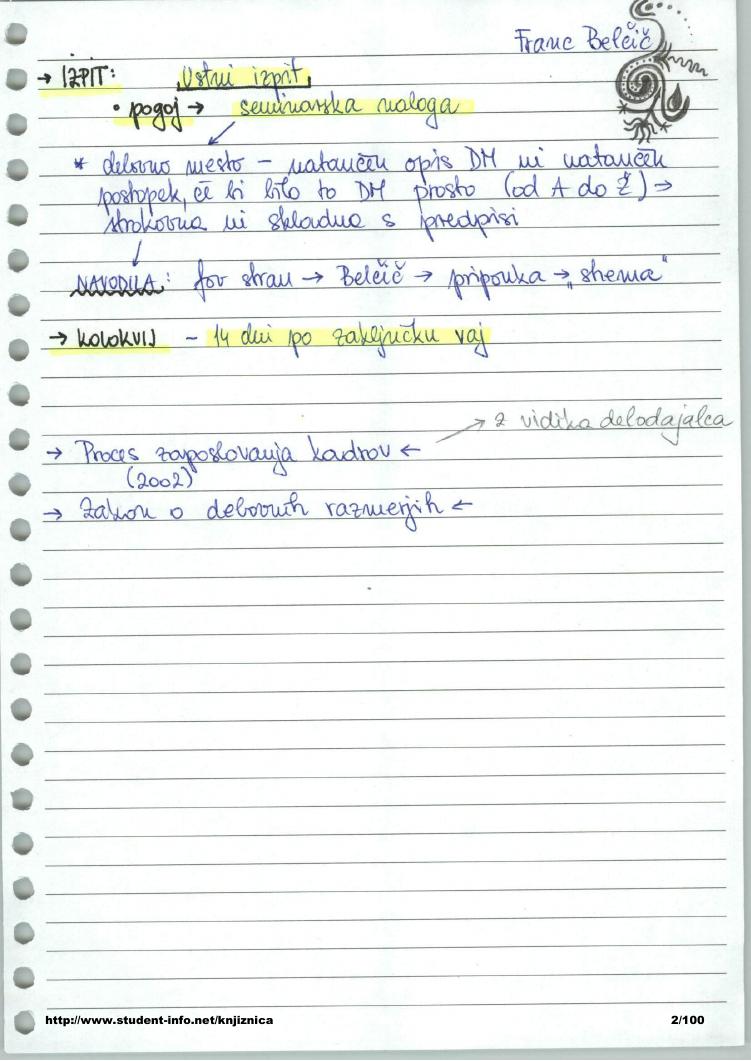 Franc Belčič
→ IZPIT: Ustni izpit
• pogoj → seminarska naloga
* delovno mesto – natančen opis DM in natančen
postopek, če bi bilo to DM prosto (od A do Ž) ⇒
strokovna in skladna s predpisi
NAVODILA: fov stran → Belčič → priponka → „shema"
→ KOLOKVIJ – 14 dni po zaključku vaj
→ z vidika delodajalca
→ Proces zaposlovanja kadrov ←
(2002)
→ Zakon o delovnih razmerjih ←
http://www.student-info.net/knjiznica 2/100